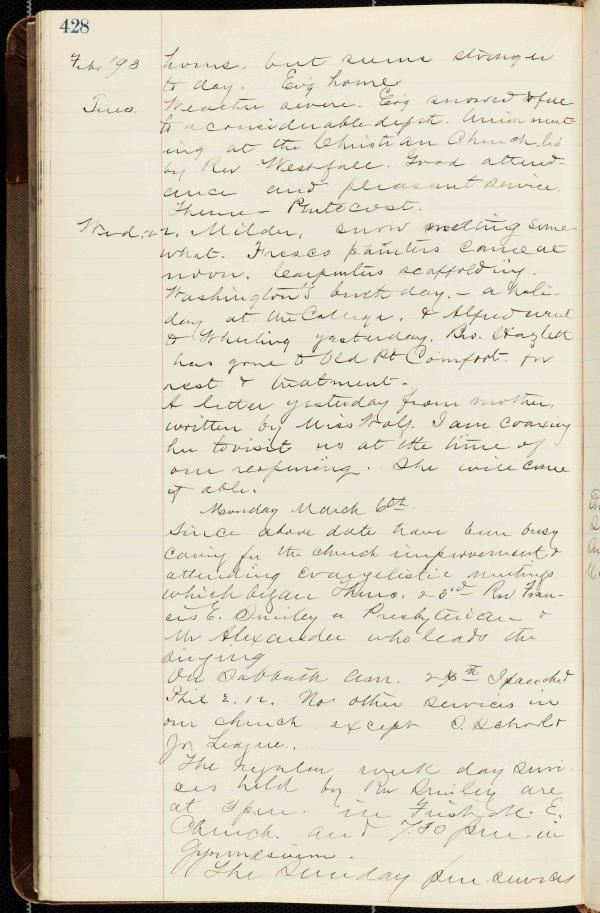 428
Feb. '93 home, but seems stronger
to day. Ev'g home.
Tues. Weather severe. Ev'g snowed &
to a considerable depth. Union meet-
ing at the Christian Church, led
by Rev Westfall. Good attend-
ance and pleasant service.
Theme - Pentocost.
Wed. 22. Milder, snow melting some-
what. Fresco painters came at
noon. Carpenters scaffolding.
Washington's birth day. - a holi-
day at the College, & Alfred went
to Wheeling yesterday. Bro. Hazlett
has gone to Old Pt Comfort. for
rest & treatment -
A letter yesterday from mother,
written by Miss Wolf. I am coaxing
her to visit us at the time of
our reopening. She will come
if able.
Monday March 6th.
Since above date have been busy
caring for the church improvement &
attending evangelistic meetings
which began Thurs. 23rd Rev Fran-
cis E. Smiley a Presbyterian &
Mr Alexander who leads the
singing
On Sabbath a.m. 26th I preached
Phil 2.12. No other services in
our church except S. School &
Jr League.
The regular week day servi-
ces held by Rev Smiley are
at 2 p.m. in First M. E.
Church. and 7.30 p.m. in
Gymnasium.
The Sunday p.m. services